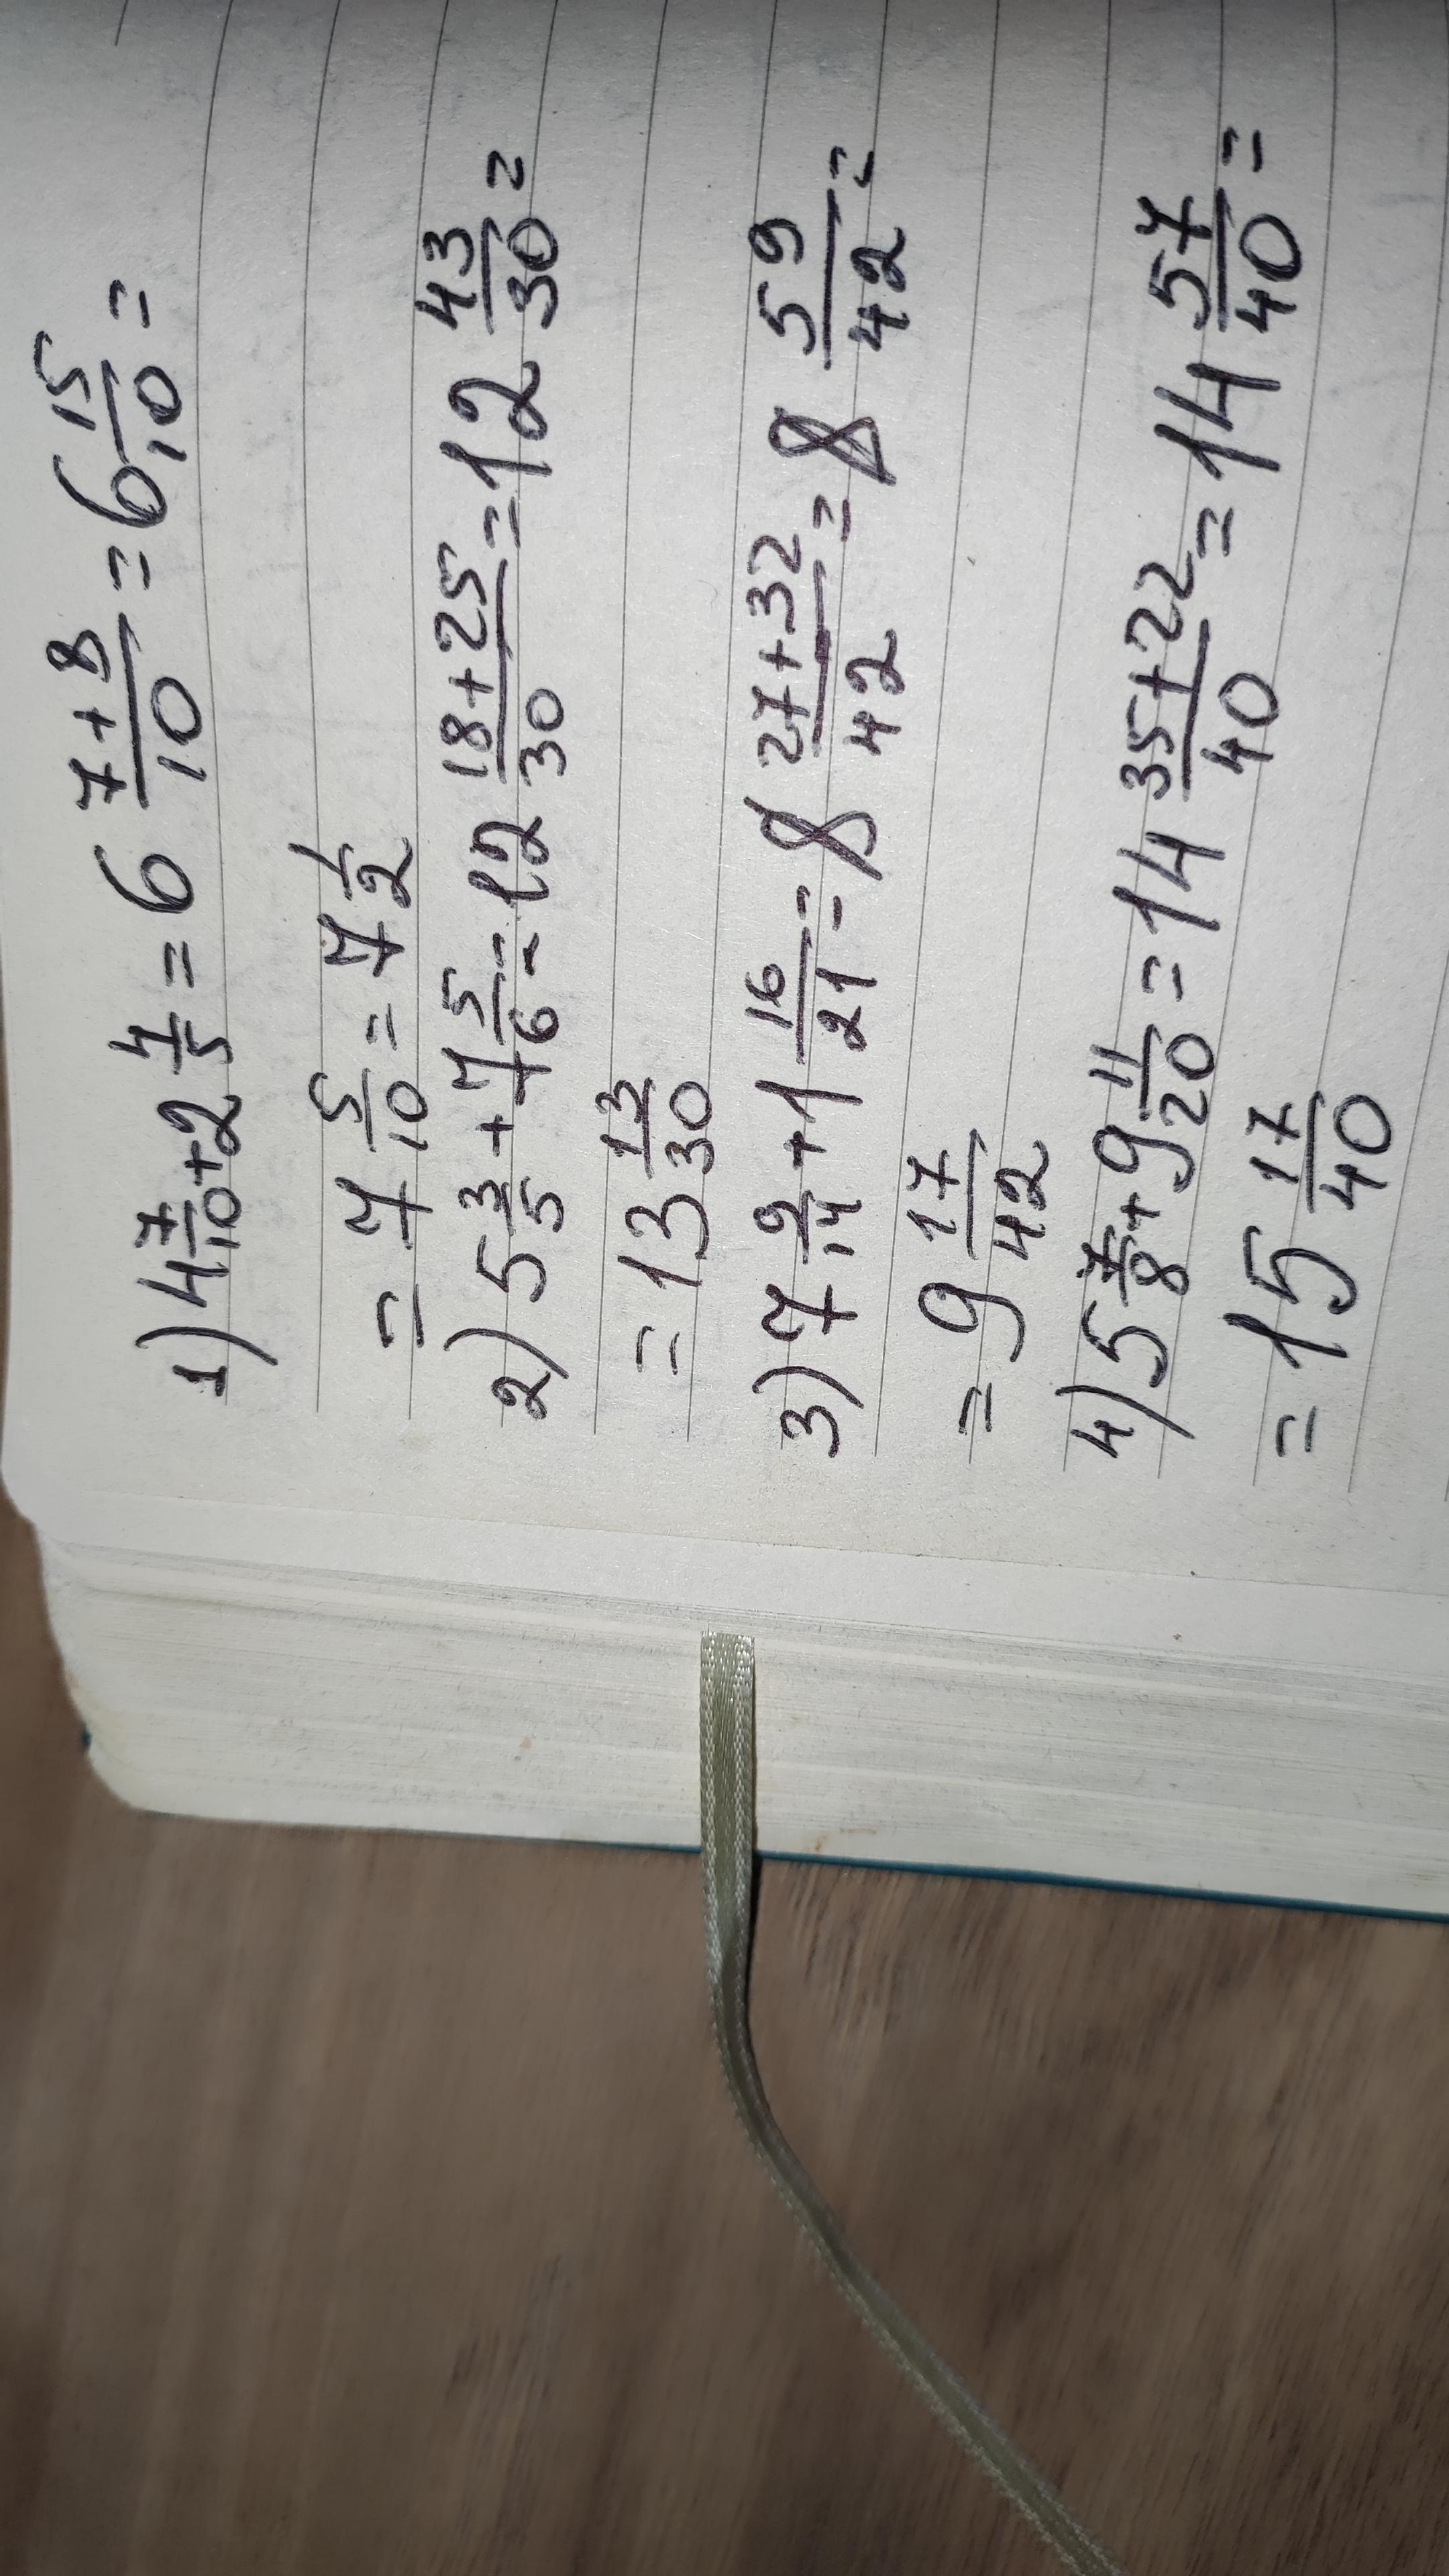 1) 4 7/10 + 2 4/5 = 6 (7+8)/10 = 6 15/10 =
= 7 5/10 = 7 1/2
2) 5 3/5 + 7 5/6 = 12 (18+25)/30 = 12 43/30 =
= 13 13/30
3) 7 9/14 + 1 16/21 = 8 (27+32)/42 = 8 59/42 =
= 9 17/42
4) 5 7/8 + 9 11/20 = 14 (35+22)/40 = 14 57/40 =
= 15 17/40